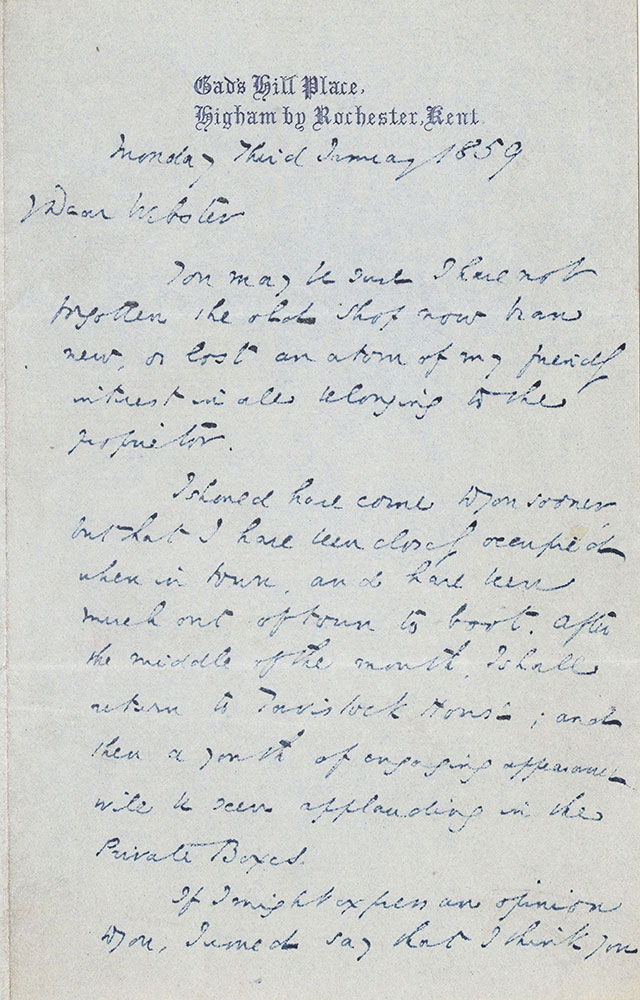 Gad's Hill Place,
Higham by Rochester, Kent.
Monday Third January 1859
My Dear Webster
You may be sure I have not
forgotten the old shop now bran
new, or lost an atom of my friendly
interest in all belonging to the
proprietor.
I should have come to you sooner,
but that I have been closely occupied
when in town, and have been
much out of town to boot. After
the middle of the month, I shall
return to Tavistock House; and
then a youth of engaging appearance
will be seen applauding in the
Private Boxes.
If I might express an opinion
to you, I would say that I think you